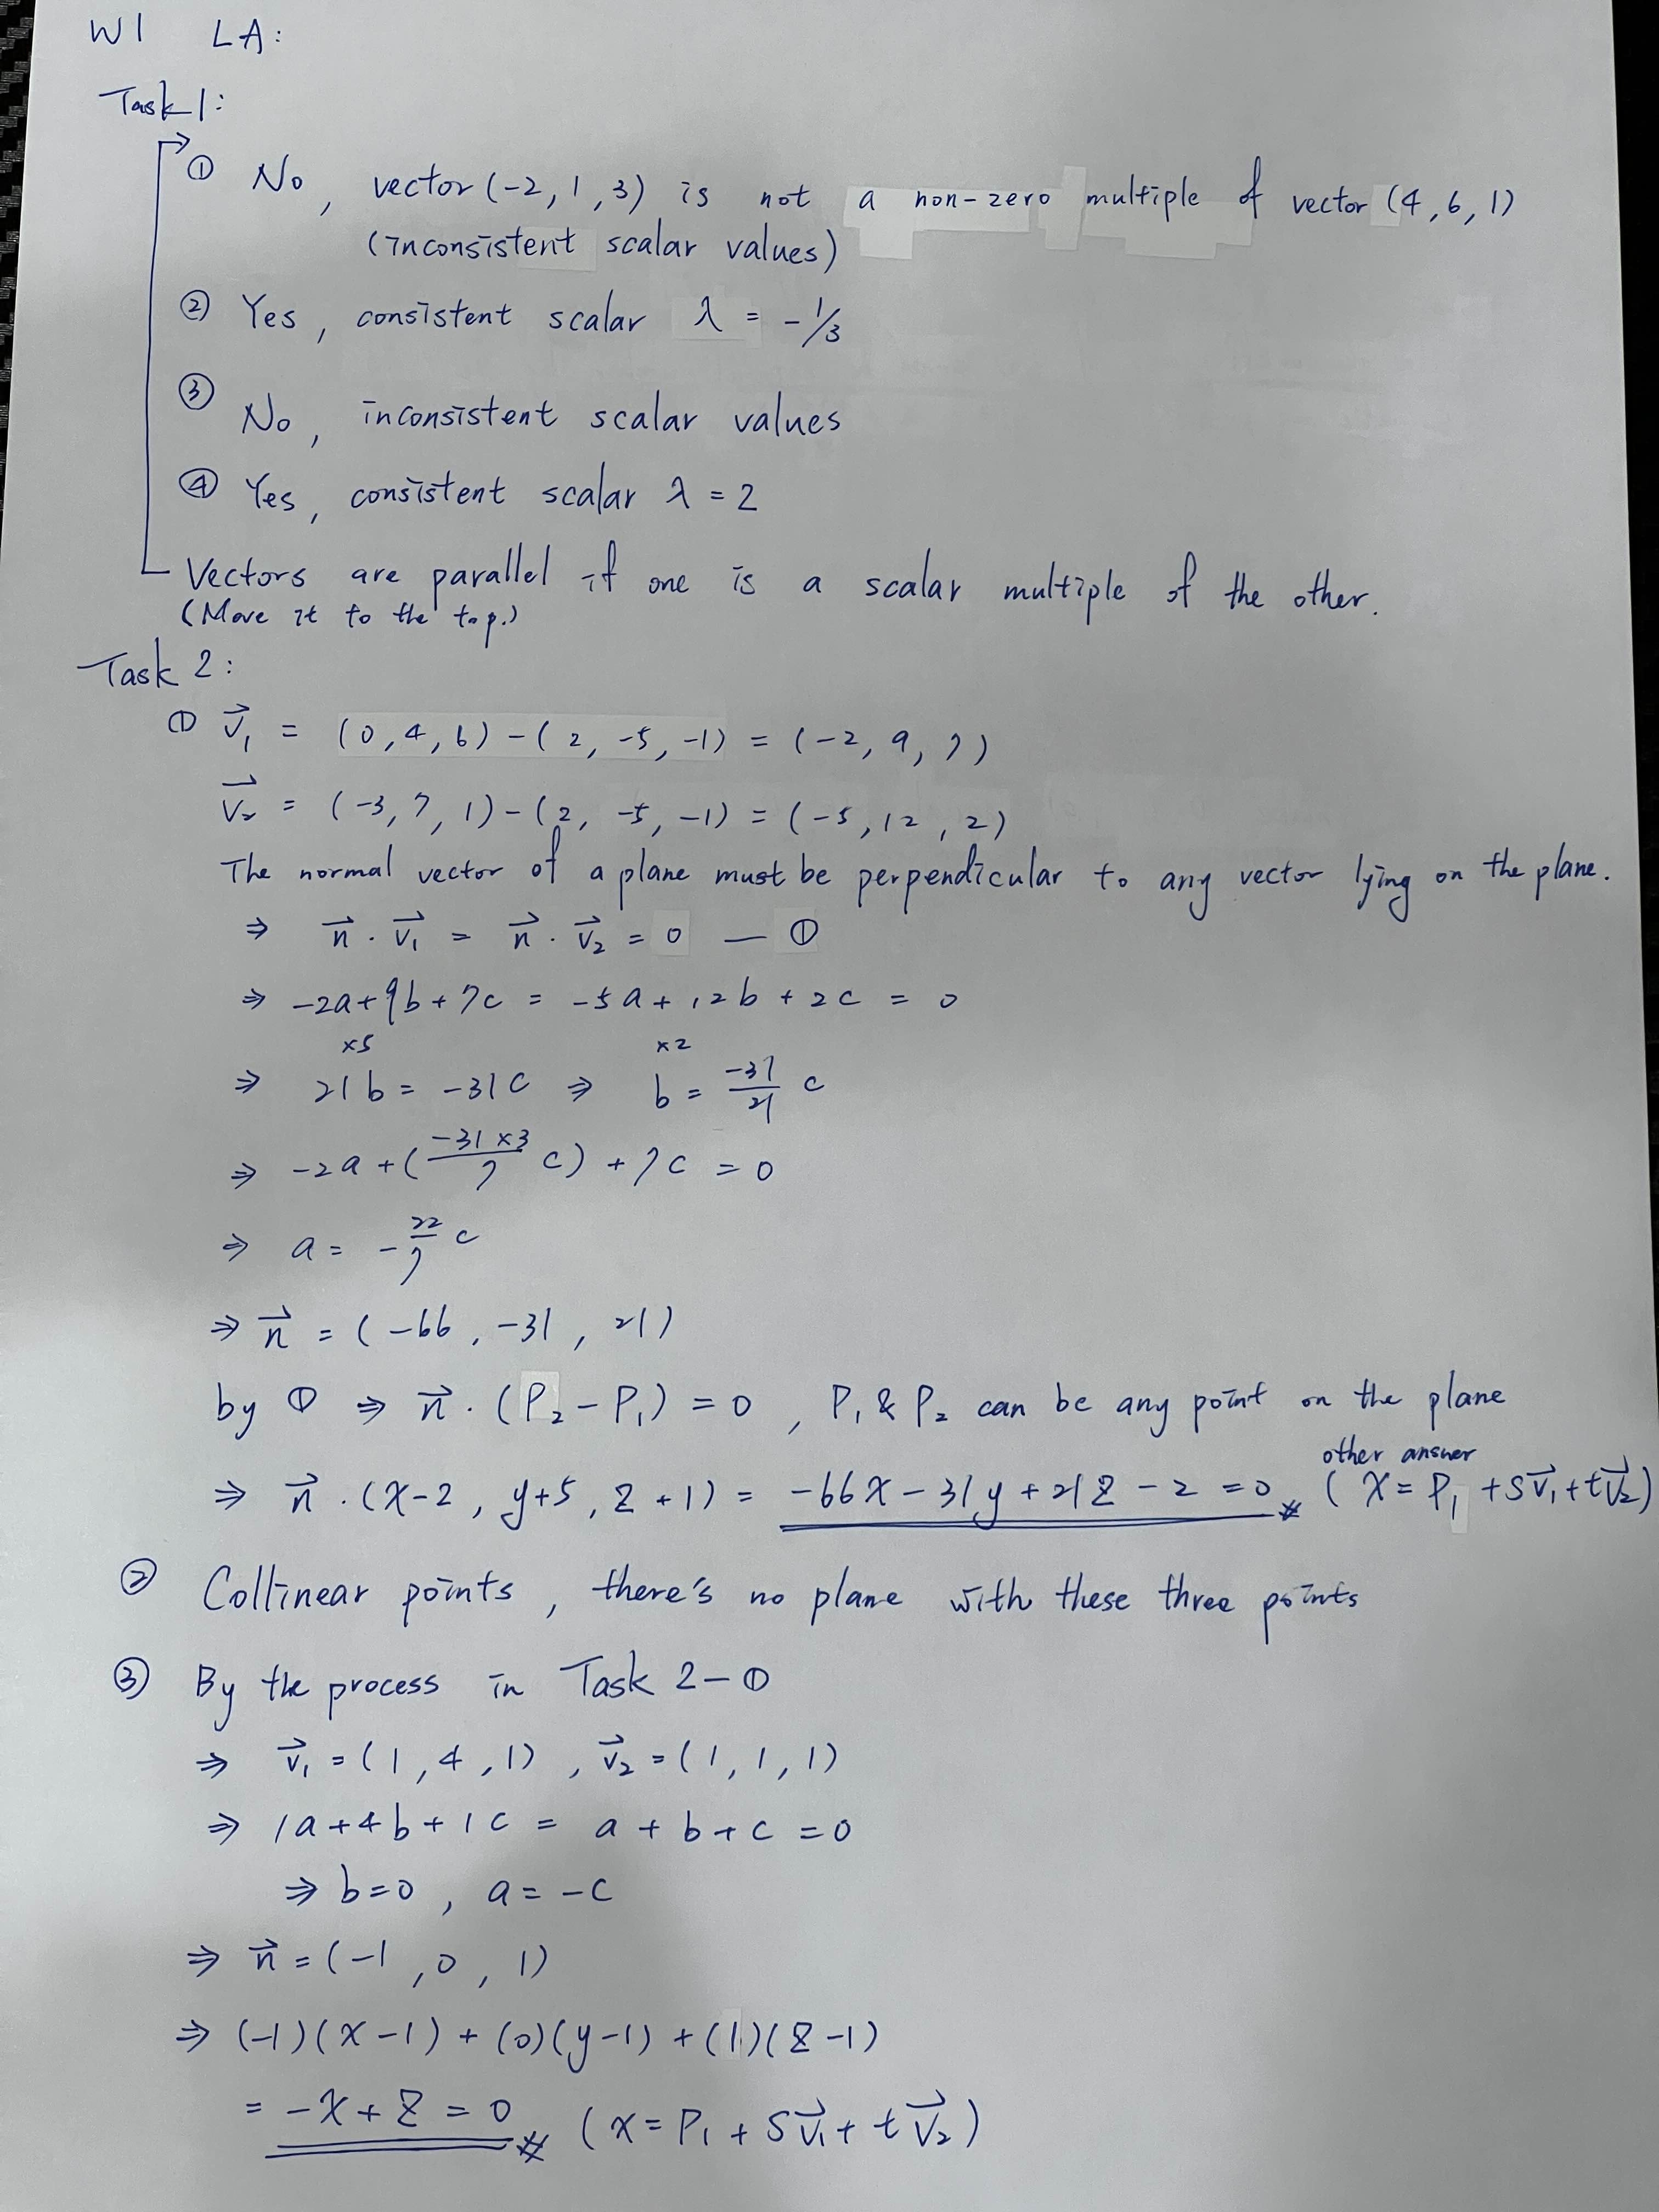 W1 LA:
Task 1:
① No, vector (-2, 1, 3) is not a non-zero multiple of vector (4, 6, 1)
(inconsistent scalar values)
② Yes, consistent scalar λ = -1/3
③ No, inconsistent scalar values
④ Yes, consistent scalar λ = 2
Vectors are parallel if one is a scalar multiple of the other.
(Move it to the top.)
Task 2:
① v⃗₁ = (0, 4, 6) - (2, -5, -1) = (-2, 9, 7)
v⃗₂ = (-3, 7, 1) - (2, -5, -1) = (-5, 12, 2)
The normal vector of a plane must be perpendicular to any vector lying on the plane.
⇒ n⃗ · v⃗₁ = n⃗ · v⃗₂ = 0 — ①
⇒ -2a + 9b + 7c = -5a + 12b + 2c = 0
×5 ×2
⇒ 21b = -31c ⇒ b = -31/21 c
⇒ -2a + (-31×3/7 c) + 7c = 0
⇒ a = -22/7 c
⇒ n⃗ = (-66, -31, 21)
by ① ⇒ n⃗ · (P₂ - P₁) = 0, P₁ & P₂ can be any point on the plane
other answer
⇒ n⃗ · (x-2, y+5, z+1) = -66x - 31y + 21z - 2 = 0 # (x = P₁ + sv⃗₁ + tv⃗₂)
② Collinear points, there's no plane with these three points
③ By the process in Task 2-①
⇒ v⃗₁ = (1, 4, 1), v⃗₂ = (1, 1, 1)
⇒ 1a + 4b + 1c = a + b + c = 0
⇒ b = 0, a = -c
⇒ n⃗ = (-1, 0, 1)
⇒ (-1)(x-1) + (0)(y-1) + (1)(z-1)
= -x + z = 0 # (x = P₁ + sv⃗₁ + tv⃗₂)